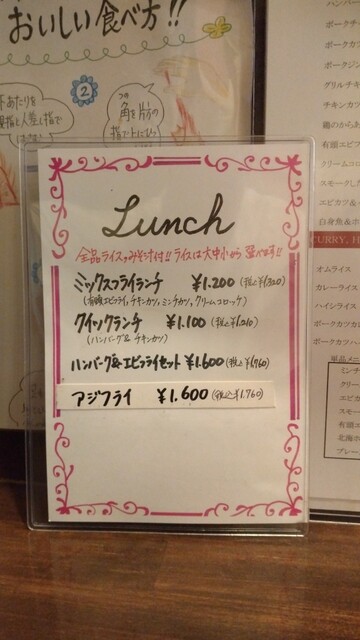 おいしい食べ方!!
2
角を片方の
Lunch
全品ライス,みそ汁付!! ライスは大中小から選べます!!
ミックスフライランチ ¥1.200 (税込¥1,320)
(有頭エビフライ,チキンカツ,ミンチカツ,クリームコロッケ)
クイックランチ ¥1.100 (税込¥1,210)
(ハンバーグ& チキンカツ)
ハンバーグ&エビフライセット ¥1.600 (税込¥1,760)
アジフライ ¥1.600 (税込¥1.760)
ハンバー
ポークカツ
チキンカツ
有頭エビフ
クリームコロ
スモークし
エビカツ&
白身魚&ホ
CURRY, H
オムライス
カレーライス
ハイシライス
ポークカツカ
単品メニ
ミンチ
クリー
エビカ
スモー
有頭エ
北海の
プレー